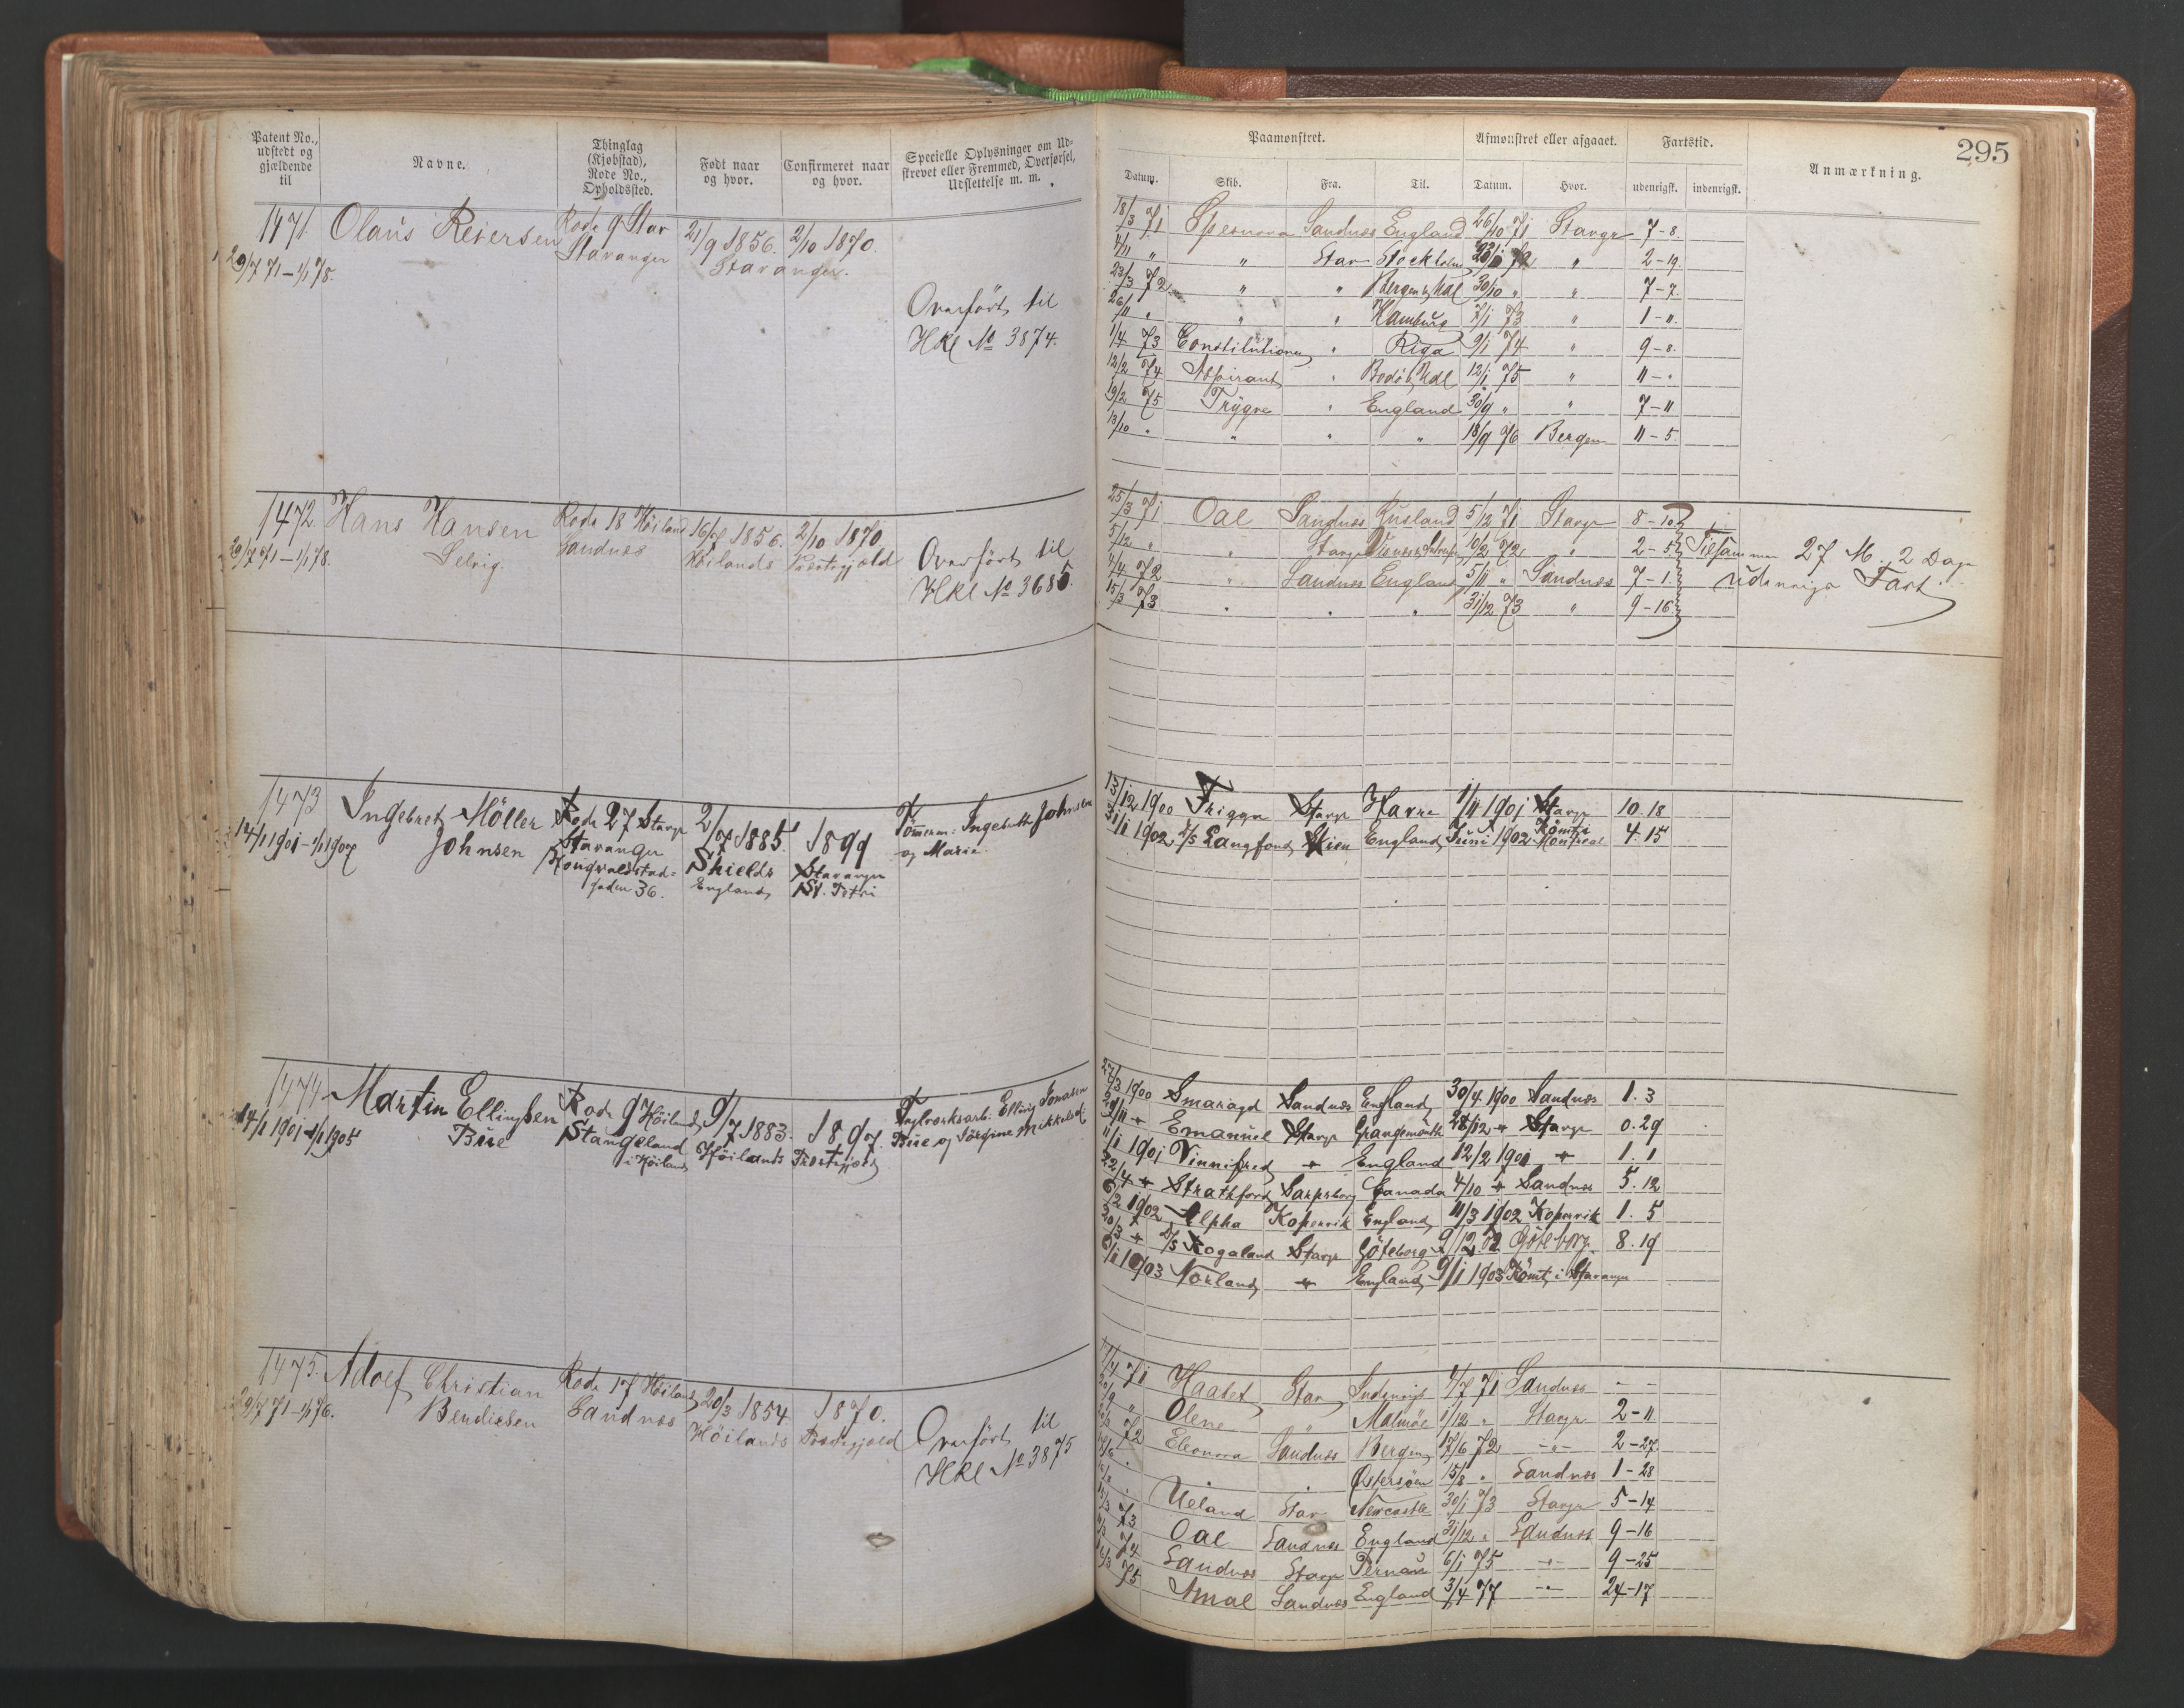 Patent No., udstedt og gjældende til
Navne.
Thinglag (Kjøbstad), Rode No., Opholdssted.
Født naar og hvor.
Confirmeret naar og hvor.
Specielle Oplysninger om Udskrevet eller Fremmed, Overførsel, Udslettelse m. m.
Paamønstret.
Afmønstret eller afgaaet.
Fartstid.
Anmærkning.
295
Datum. Skib. Fra. Til. Datum. Hvor. udenrigsk. indenrigsk.
1471. Olaus Reiersen Rode 9 Star 21/9 1856. 2/10 1870.
29/7 71 – 1/1 78. Stavanger Stavanger.
Overført til
Hkl No 3874.
18/3 71 Sandnes England 26/10 71 Stavgr 7-8.
4/11 " " Star Stockholm 2-19.
23/3 72 " " 30/10 " " 7-7
26/11 " " " Hamburg 7/1 73 " 1-11.
1/4 73 Constitutionen " Riga 9/1 74 " 9-8.
12/2 74 Aspirant " 12/1 75 " 11-"
19/2 75 Trygve " England 30/9 " " 7-11
13/10 " " " " 18/9 76 Bergen 11-5.
1472 Hans Hansen Rode 18 Höiland 1856. 2/10 1870
29/7 71 – 1/1 78. Selvig. Sandnes Höilands Præstegjæld
Overført til
Hkl No 3685.
25/3 71 Oal Sandnes Rusland 5/12 71 Stavgr 8-10
5/12 " " Stavgr 10/2 72 " 2-5 Tilsammen 27 M. 2 Dage
4/4 72 " Sandnes England 5/11 " Sandnes 7-1. udenrigs Fart
15/3 73 " " " 31/12 73 " 9-16
1473 Ingebret Möller Rode 27 Stavgr 2/7 1885. 1899 Tömmerm: Ingebrett Johnsen
14/1 1901 – 1/1 1907 Johnsen Stavanger Shields Stavanger og Marie
England St. Petri
gaden 36.
13/12 1900 Triggve Stavgr Havre 1/11 1901 Stavgr 10.18
31/1 1902 D/S Langfond Skien England Juni 1902 Römt i Montreal 4.15
1474 Martin Ellingsen Rode 9 Höiland 9/7 1883. 1897. Teglværksarb: Elling Jonasen
14/1 1901 – 1/1 1905 Bue Stangeland Höilands Præstegjæld Bue og Jörgine Mikkelsd.
i Höiland
27/3 1900 Smaragd Sandnes England 30/4 1900 Sandnes 1.3
Emanuel Stavgr Grangemouth 28/12 " Stavgr 0.29
11/1 1901 Vinnifred " England 12/2 1901 " 1.1
22/4 " Strathford Sarpsborg Canada 4/10 " Sandnes 5.12
6/2 1902 Alpha Kopervik England 11/3 1902 Kopervik 1.5
20/3 " D/S Rogaland Stavgr Göteborg 9/12 02 Göteborg 8.19
6/1 1903 Norland " England 9/1 1903 Römt i Stavanger
1475. Adolf Christian Rode 17 Höiland 20/3 1854. 1870.
29/7 71 – 1/1 76. Bendiksen Sandnes Höilands Præstegjæld
Overført til
Hkl No 3875
71 Haabet Star Indenrigs 4/7 71 Sandnes – –
" Olene " Malmöe 1/12 " Stavgr 2-11
72 Eleonora Sandnes Bergen 17/6 72 -"- 2-27
" " " Östersöen 15/8 " Sandnes 1-28
" Ueland Star Newcastle 30/1 73 Stavgr 5-14
73 Oal Sandnes England 31/12 " Sandnes 9-16
74 Sandnes Stavgr Pernau 6/1 75 -"- 9-25
75 Amal Sandnes England 3/4 77 -"- 24-17